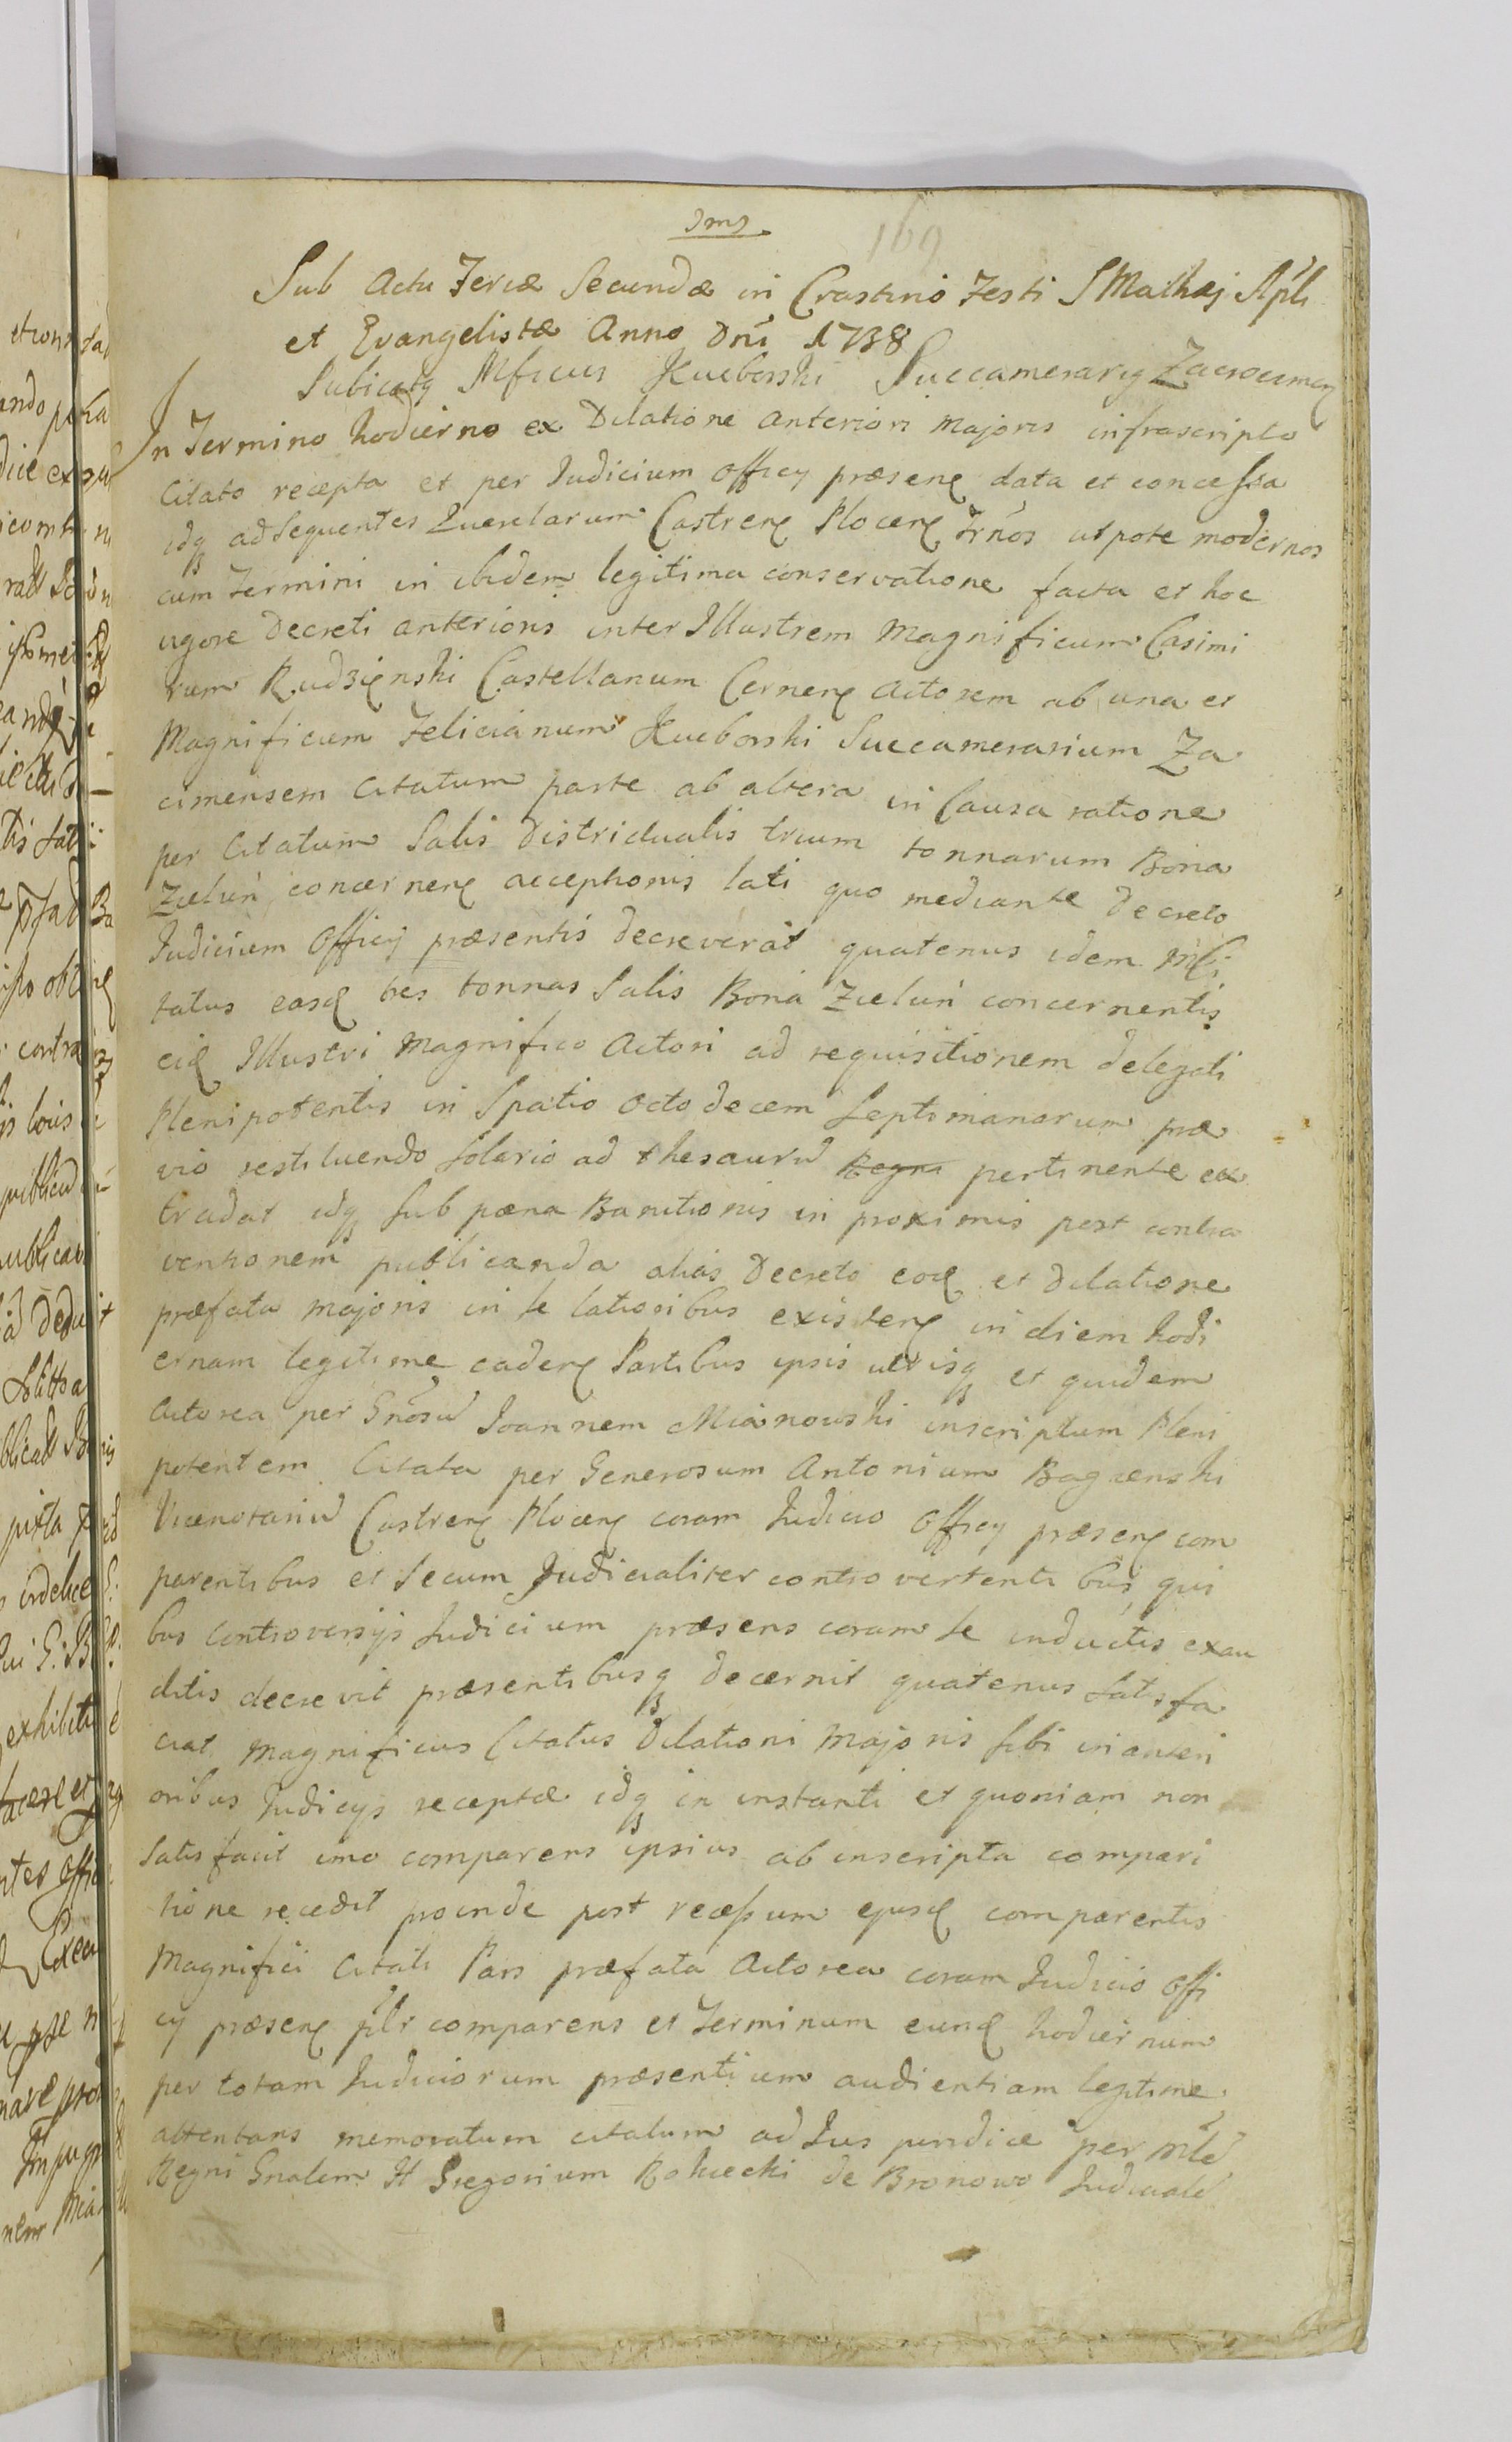 169
Sub Actu Feriæ Secundæ in Crastino Festi S Mathæj Apli
et Evangelistæ Anno Dni 1738
Mficus Kuczborski Succamerarig
In Termino hodierno ex Dilatione anteriori majoris infrascripto
Citato recepta et per Judicium Officy præsens data et concessa
idq ad Sequentes Querelarum Castrens Plocens Trnos utpote modernos
cum Termini in ibidem legitima conservatione facta et hoc
vigore Decreti anterioris inter Illustrem Magnificum Casimi
rum Rudzienski Castellanum Cernens Actorem ab una et
Magnificum Felicianum Kuczborski Succamerarium Za
cimensem Citatum parte ab altera in Causa ratione
per Citatum Salis Districtualis trium tonnarum Bona
Zielun concernens acceptionis lati quo mediante Decreto
Judicium Officy præsentis decreverat quatenus idem
tatus easd tres tonnas Salis Bona Zielun concernentis
eid Illustri Magnifico Actori ad requisitionem delegati
Plenipotentis in Spatio octodecem Septimanarum præ
vio restituendo solario ad thesauru Regni pertinente ex
tradat idq sub pæna Banitionis in proximis post contra
ventionem publicanda alias Decreto eod et Dilatione
præfata majoris in se latioribus existens in diem hodi
ernam legitime cadens Partibus ipsis utrisq et quidem
Actorea per Gnosu Joannem Mianowski inscriptum Pleni
potentem Citata per Generosum Antonium
Vicenotariu Castrens Plocens coram Judicio Officy præsens com
parentibus et Secum Judicialiter controvertentibus, qui
bus Controversijs Judicium præsens coram se inductis exau
ditis decrevit præsentibusq decernit quatenus satisfa
ciat Magnificus Citatus Dilationi Majoris sibi in anteri
oribus Judicijs receptæ idq in instanti et quoniam non
Satisfacit imo comparens ipsius ab inscripta compari
tione recedit proinde post recessum ejusd comparentis
Magnifici Citati Pars præfata Actorea coram Judicio Offi
cy præsens plr comparens et Terminum eund hodiernum
per totam Judiciorum præsentium audientiam legitime
attentans memoratum citatum ad Jus juridice per
Regni Gnalem H Gregorium Rokicki de Bronowo Judiciale